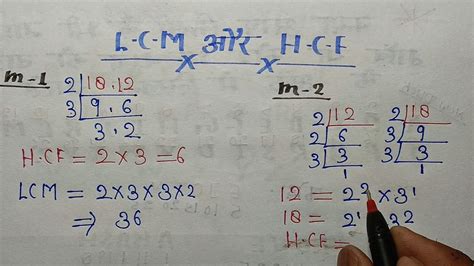 L.C.M और H.C.F
m-1
2 | 18, 12
3 | 9, 6
3, 2
H.CF = 2×3 = 6
LCM = 2×3×3×2
⇒ 36
m-2
2 | 12
2 | 6
3 | 3
1
2 | 18
3 | 9
3 | 3
1
12 = 2² × 3¹
18 = 2¹ 32
H.CF =